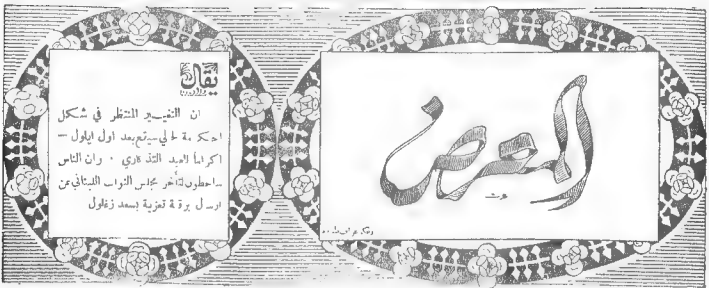 المعرض
يقال
ان التغيير المنتظر في شكل
الحكومة الحالي سيقع بعد اول ايلول —
اكراماً للعيد التذكاري . وان الناس
ساخطون لتأخر مجلس النواب اللبناني عن
ارسال برقة تعزية بسعد زغلول